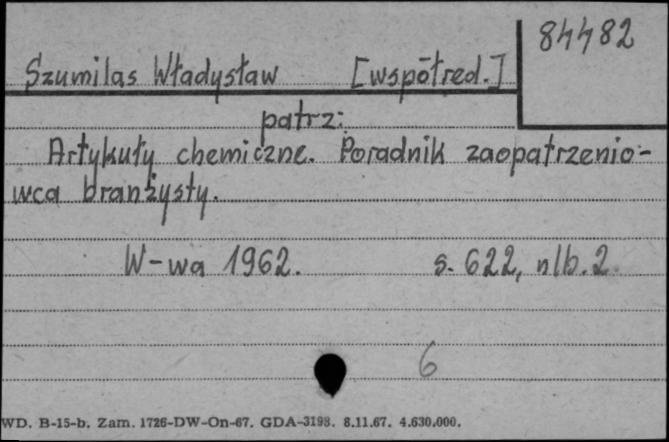 84482
Szumilas Władysław [współred.]
patrz:
Artykuły chemiczne. Poradnik zaopatrzenio-
wca branżysty.
W-wa 1962. s. 622, nlb. 2.
6
WD. B-15-b. Zam. 1726-DW-On-67. GDA-3198. 8.11.67. 4.630.000.